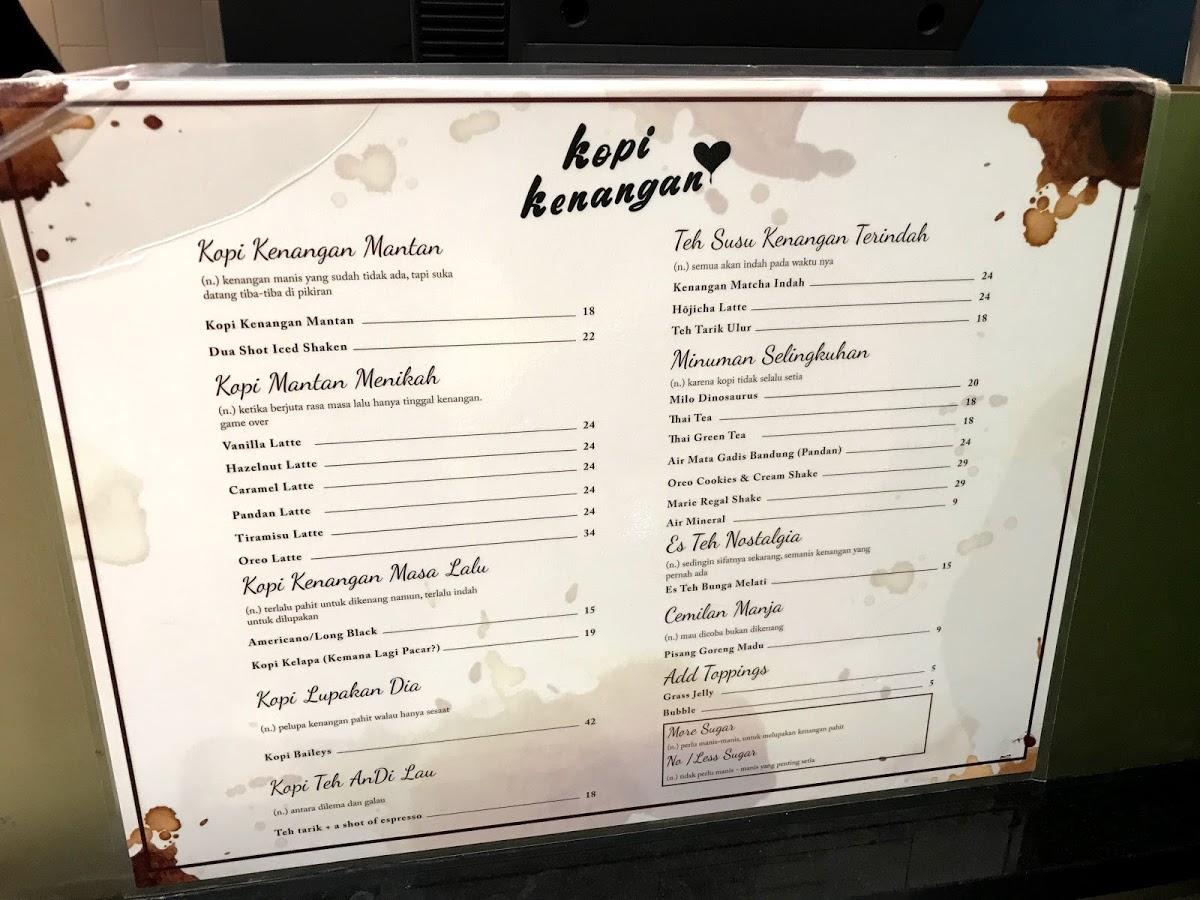 kopi
kenangan
Kopi Kenangan Mantan
(n.) kenangan manis yang sudah tidak ada, tapi suka
datang tiba-tiba di pikiran
Kopi Kenangan Mantan 18
Dua Shot Iced Shaken 22
Kopi Mantan Menikah
(n.) ketika berjuta rasa masa lalu hanya tinggal kenangan.
game over
Vanilla Latte 24
Hazelnut Latte 24
Caramel Latte 24
Pandan Latte 24
Tiramisu Latte 24
Oreo Latte 34
Kopi Kenangan Masa Lalu
(n.) terlalu pahit untuk dikenang namun, terlalu indah
untuk dilupakan
Americano/Long Black 15
Kopi Kelapa (Kemana Lagi Pacar?) 19
Kopi Lupakan Dia
(n.) pelupa kenangan pahit walau hanya sesaat
Kopi Baileys 42
Kopi Teh AnDi Lau
(n.) antara dilema dan galau
Teh tarik + a shot of espresso 18
Teh Susu Kenangan Terindah
(n.) semua akan indah pada waktu nya
Kenangan Matcha Indah 24
Hōjicha Latte 24
Teh Tarik Ulur 18
Minuman Selingkuhan
(n.) karena kopi tidak selalu setia
Milo Dinosaurus 20
Thai Tea 18
Thai Green Tea 18
Air Mata Gadis Bandung (Pandan) 24
Oreo Cookies & Cream Shake 29
Marie Regal Shake 29
Air Mineral 9
Es Teh Nostalgia
(n.) sedingin sifatnya sekarang, semanis kenangan yang
pernah ada
Es Teh Bunga Melati 15
Cemilan Manja
(n.) mau dicoba bukan dikenang
Pisang Goreng Madu 9
Add Toppings
Grass Jelly 5
Bubble 5
More Sugar
(n.) perlu manis-manis, untuk melupakan kenangan pahit
No / Less Sugar
(n.) tidak perlu manis - manis yang penting setia